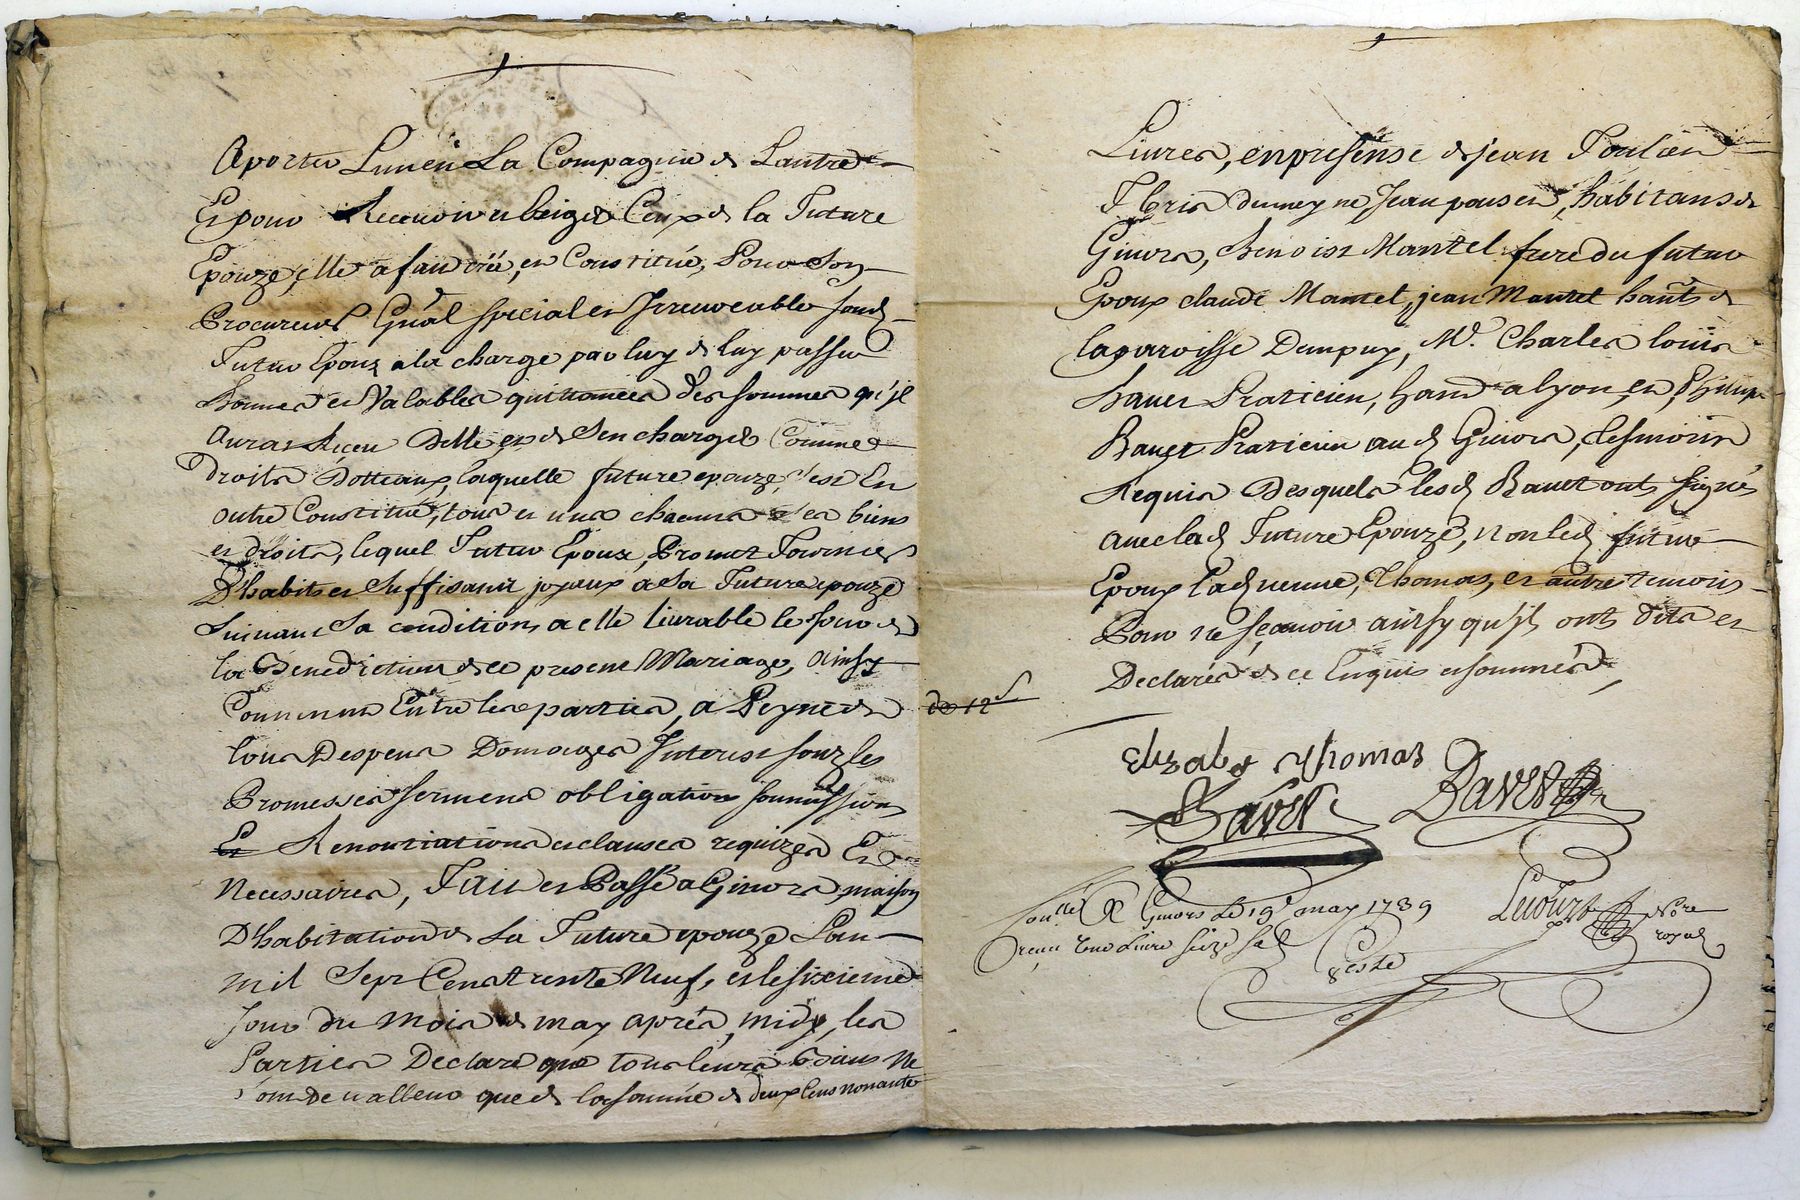 Aporter Lun en La Compagnie de Lautre
Et pour Recevoir exiger Ceux de la Future
Epouze, elle a fait crée, et Constitué, Pour Son
Procureur Gnâl special et Irrevocable sond
Futur Epoux a la charge par luy de luy passer
bonnes et Valables quittances des sommes qu'jl
Aura Reçeu Delle et de Sen charger Comme
droits Dotteaux, laquelle future epouze, s'est En
outre Constitué, tous et uns chacuns ses biens
et droits, lequel Futur Epoux, Promet Fournir
D'habits et Suffisant joyaux a Sa Future epouze
Suivant Sa condition, a elle livrable le jour de
la Benediction de ce present Mariage, Ainsy
Convenu Entre les parties, a Peyne de
tous Despens Domages Interest souz les
Promesses serment obligation soumission
Et Renontiations et clauses requizes Et
Necessaires, Fait et Passé a Givors, maison
D'habitation de La Future epouze Lan
mil Sept Cens trente Neuf, et le sixieme
jour du Mois de may aprés midy, les
Parties Declare que tous leurs Biens Ne
sont De valleur que de la somme de deux Cens nonante
de 12 s
Livres, en presense de jean Poulin
Jean habitans de
Givors, Benoist Mantel frere du futur
Epoux claude Mantel, jean Mantel hants de
la paroisse Dampuy, Mr. Charles louis
Bavet Praticien, hant a lyon, et Philipe
Bavet Praticien aud Givors, tesmoins
Requis Desquels lesd Bavet ont signés
avec lad Future Epouze, non led futur
Epoux Thomas, et autre temoins
Pour ne sçavoir ainsy qu'jls ont dits et
Declarés de ce Enquis et sommés
Elizabet Thomas
Bavet Bavet
Conllé A Givors Le 19e may 1739
reçu Une Livre seize sols
Lecourt Nore
royal